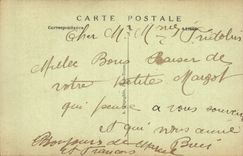 CARTE POSTALE
Correspondance
Cher M. Mme
Mille Bons Baiser de
votre petite Margot
qui pense a vous souvent
et qui vous aime
Bonjours de
et Francois